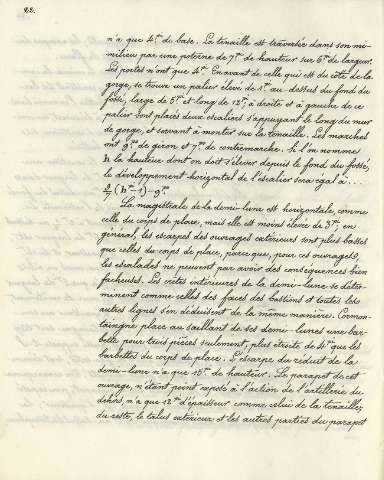 22.
n'a que 4ᵖ de base. La tenaille est traversée dans son mi-
milieu par une poterne de 7ᵖ de hauteur sur 6ᵖ de largeur.
Les portes n'ont que 4ᵖ. En avant de celle qui est du côté de la
gorge, se trouve un palier élevé de 1ᵖ au-dessus du fond du
fossé, large de 5ᵖ et long de 12ᵖ; à droite et à gauche de ce
palier sont placés deux escaliers s'appuyant le long du mur
de gorge, et servant à monter sur la tenaille. Les marches
ont 9ᵖᵒ de giron et 7ᵖᵒ de contremarche. Si l'on nomme
h la hauteur dont on doit s'élever depuis le fond du fossé,
le développement horizontal de l'escalier sera égal à ...
9/7 (hᵖ-1) - 9ᵖᵒ
La magistrale de la demi-lune est horizontale, comme
celle du corps de place, mais elle est moins élevée de 3ᵖ; en
général, les escarpes des ouvrages extérieurs sont plus basses
que celles du corps de place, parce que, pour ces ouvrages,
les escalades ne peuvent par avoir des conséquences bien
facheuses. Les crêtes intérieures de la demi-lune se déter-
minent comme celles des faces des bastions et toutes les
autres lignes s'en déduisent de la même manière. Cormon-
taingne place au saillant de ses demi-lunes une bar-
bette pour trois pièces seulement, plus étroite de 4ᵖ que les
barbettes du corps de place. L'escarpe du réduit de la
demi-lune n'a que 15ᵖ de hauteur. Le parapet de cet
ouvrage, n'étant point exposé à l'action de l'artillerie du
dehors, n'a que 12ᵖ d'épaisseur comme celui de la tenaille;
du reste, le talus extérieur et les autres parties du parapet